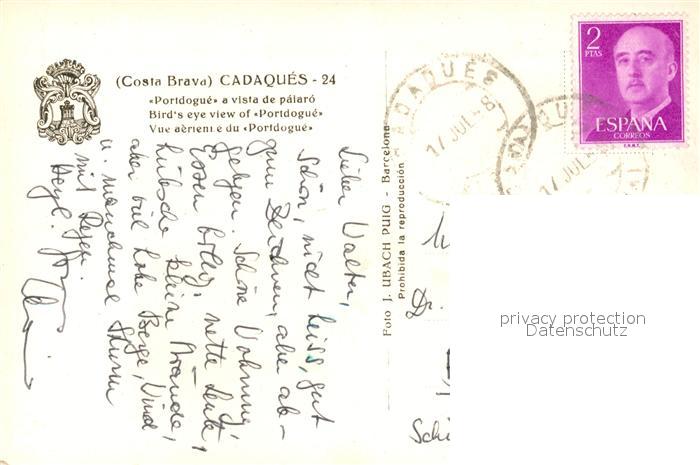 (Costa Brava) CADAQUÉS - 24
«Portdogué» a vista de páiaró
Bird's eye view of «Portdogué»
Vue aèrienı e du «Portdogué»
2
PTAS
ESPAÑA
CORREOS
F.N.M.T.
CADAQUES
17 JUL
17 JUL
Foto J. UBACH PUIG - Barcelona
Prohibida la reproducción
Lieber Walter,
Schön, nicht heiss, gut
zum Zeichnen, aber ab-
gelegen. Schöne Wohnung,
Essen billig, nette Leute,
hübsche kleine Strände,
aber viel hohe Berge, Wind
u. manchmal Sturm
mit Regen.
Herzl.
Dr.
Schi
privacy protection
Datenschutz